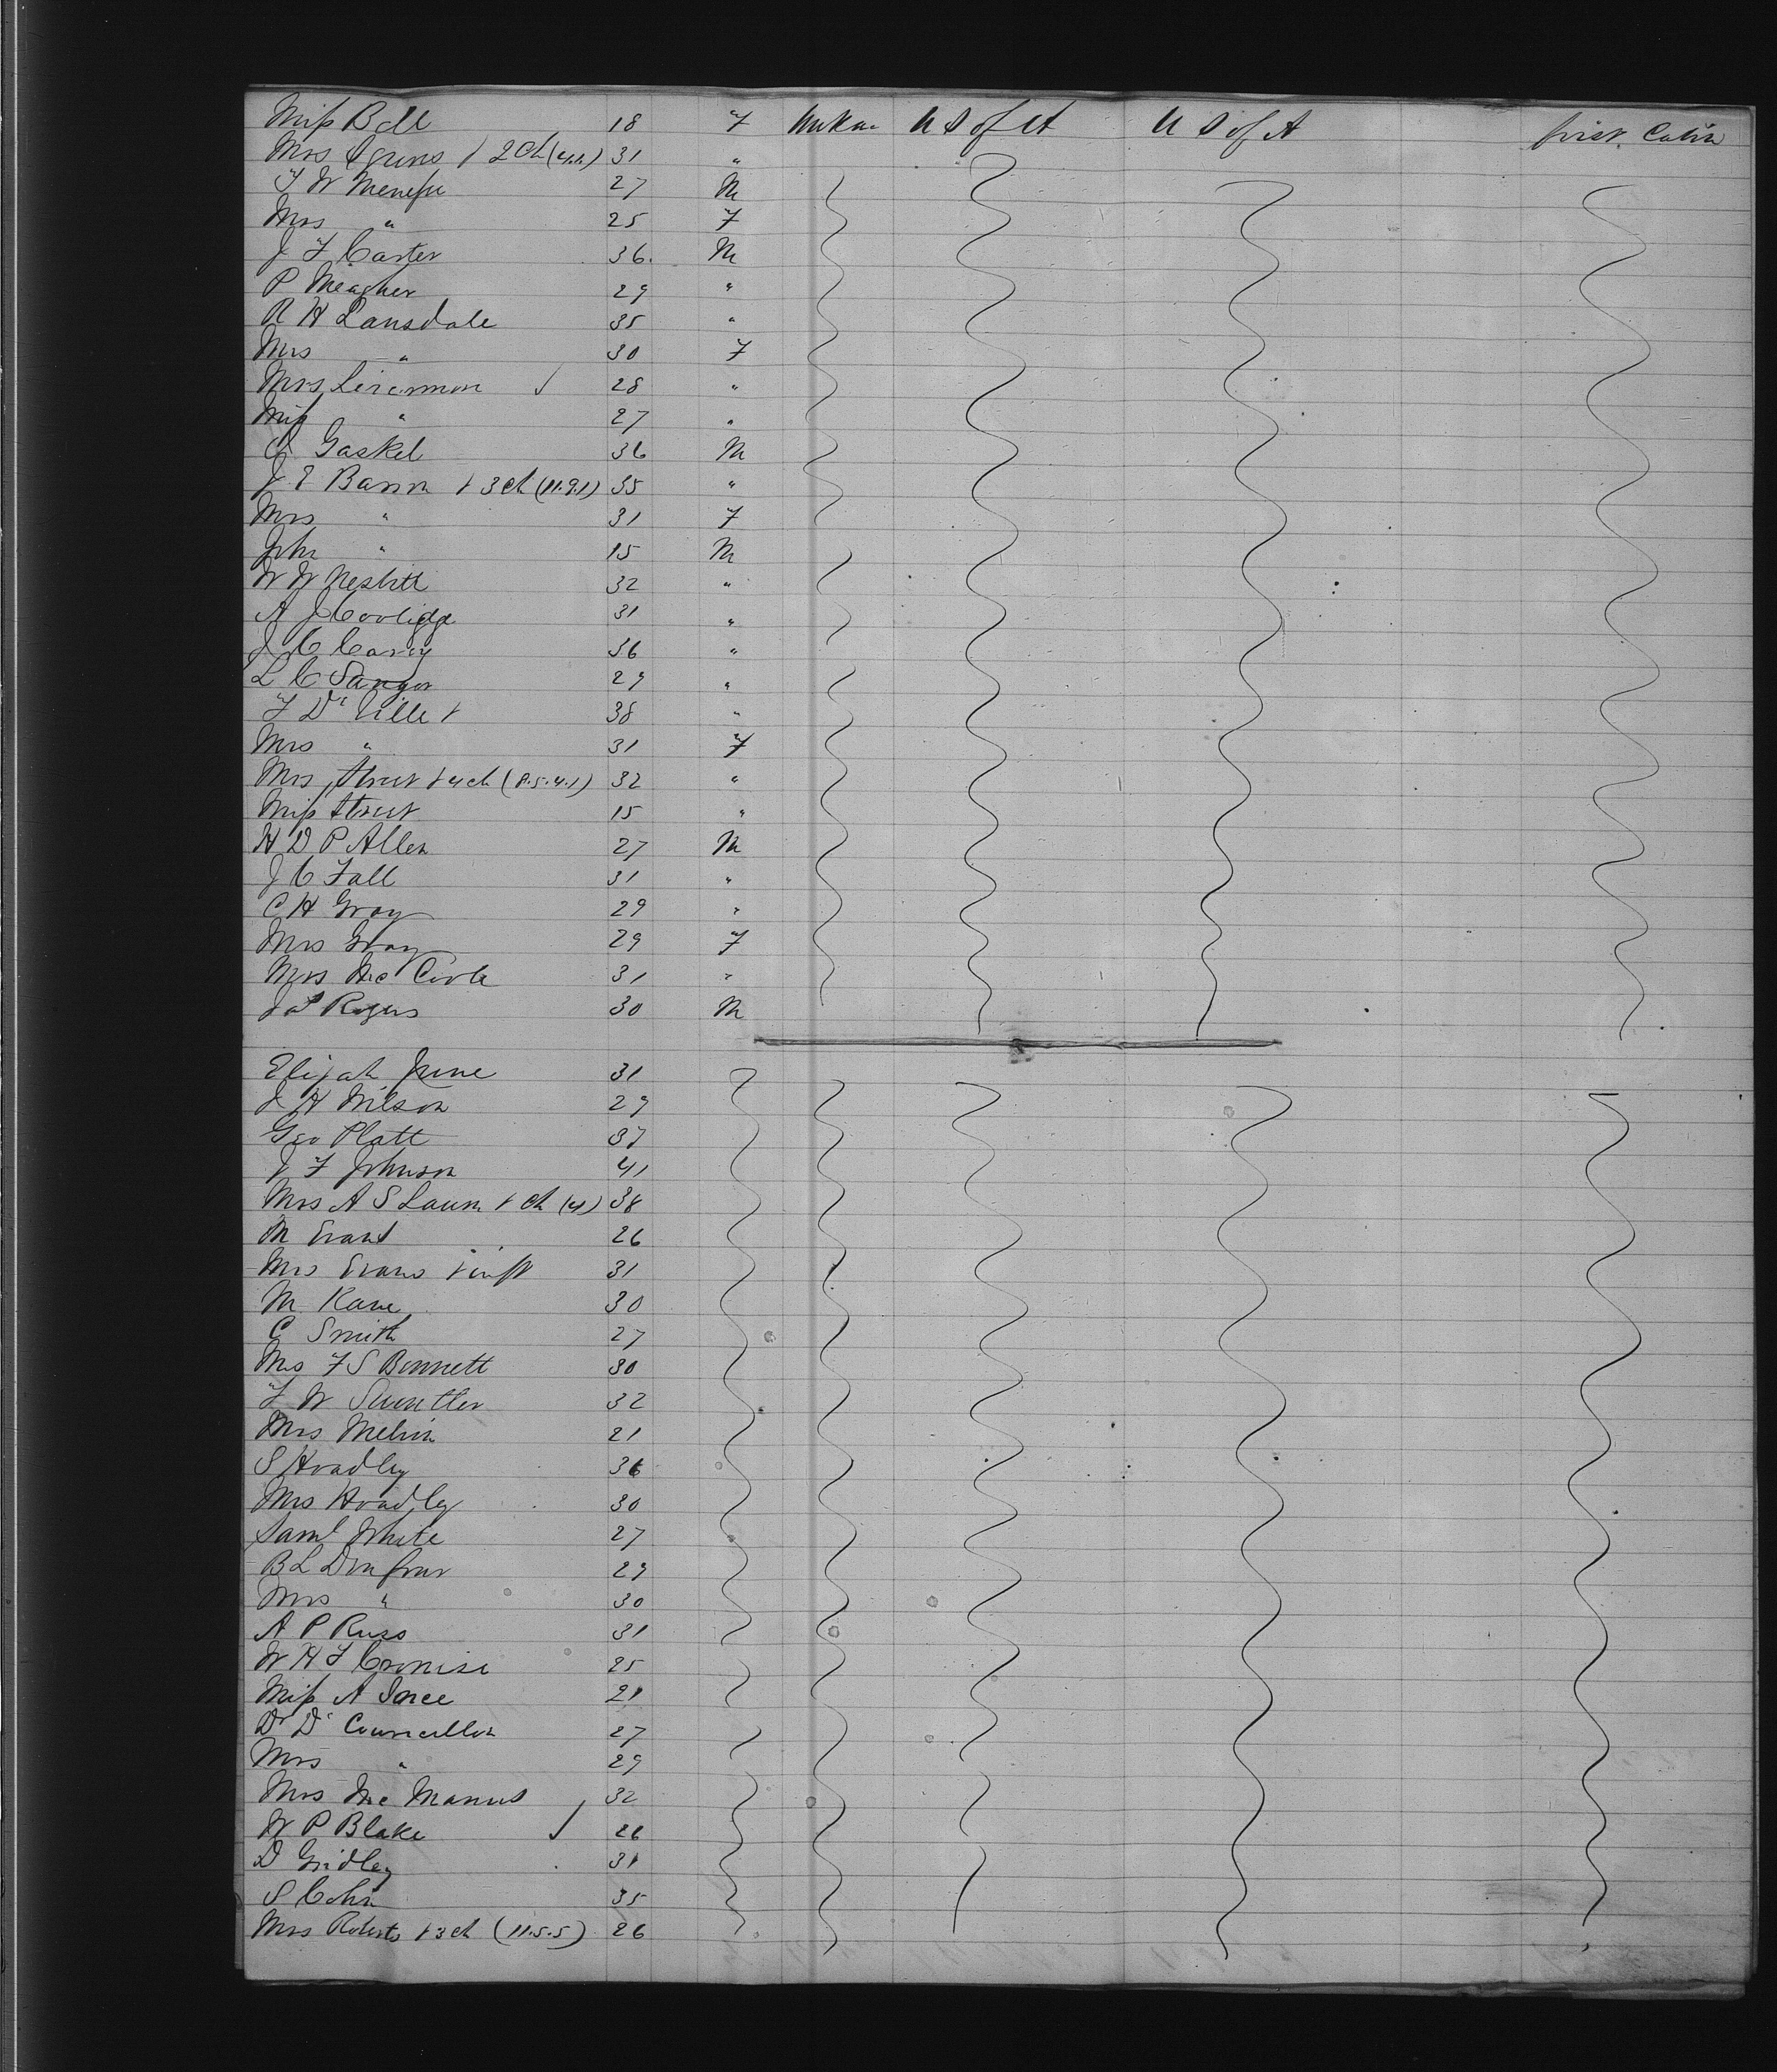 Miss Bell 18 F Unknn U S of A U S of A first Cabin
Mrs & 2 Ch 31 "
F W Menefee 27 M
Mrs " 25 F
J F Carter 36 M
P Meagher 29 "
R H Lansdale 35 "
Mrs " 30 F
Mrs 28 "
Miss " 27 "
Gaskel 36 M
J E Baron & 3 ch (11.9.1) 35 "
Mrs " 31 F
John " 15 M
W W Nesbitt 32 "
A J Coolidge 31 "
J C Carey 36 "
L C Sanger 29 "
F D' & 38 "
Mrs " 31 F
Mrs Street & 4 ch (8.5.4.1) 32 "
Miss Street 15 "
H D P Allen 27 M
J C Fall 31 "
C H Gray 29 "
Mrs Gray 29 F
Mrs Mc Coole 31 "
Rogers 30 M
Elijah June 31
J H Wilson 29
Geo Platt 37
J F Johnson 41
Mrs A S & ch (4) 38
M Evans 26
Mrs Evans & inft 31
M Kane 30
C Smith 27
Mrs F S Bennett 30
F W 32
Mrs Melvin 21
S Hoadley 36
Mrs Hoadley 30
Saml White 27
B L 29
Mrs " 30
A P Russ 31
W H F Cronise 25
Miss A 21
Dr D' Councillon 27
Mrs " 29
Mrs Mc Manus 32
W P Blake 26
D Gridley 31
S Cohn 35
Mrs Roberts & 3 ch (11.5.5) 26